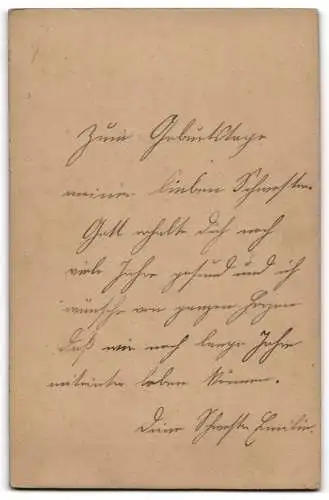 Zum Geburtstage
meiner lieben Schwester.
Gott erhalte Dich noch
viele Jahre gesund und ich
wünsche von ganzen Herzen
daß wir noch lange Jahre
miteinter leben können.
Deine Schwester Emilie.